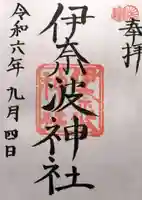 奉拝
伊奈波神社
令和六年九月四日